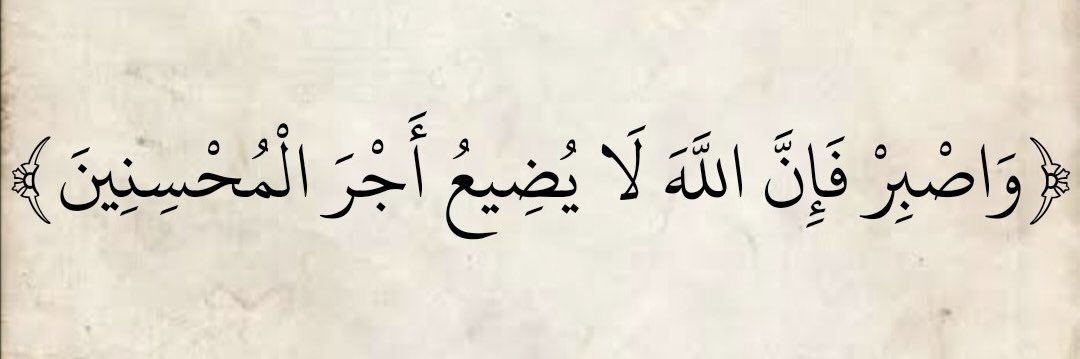 ﴿وَاصْبِرْ فَإِنَّ اللَّهَ لَا يُضِيعُ أَجْرَ الْمُحْسِنِينَ﴾